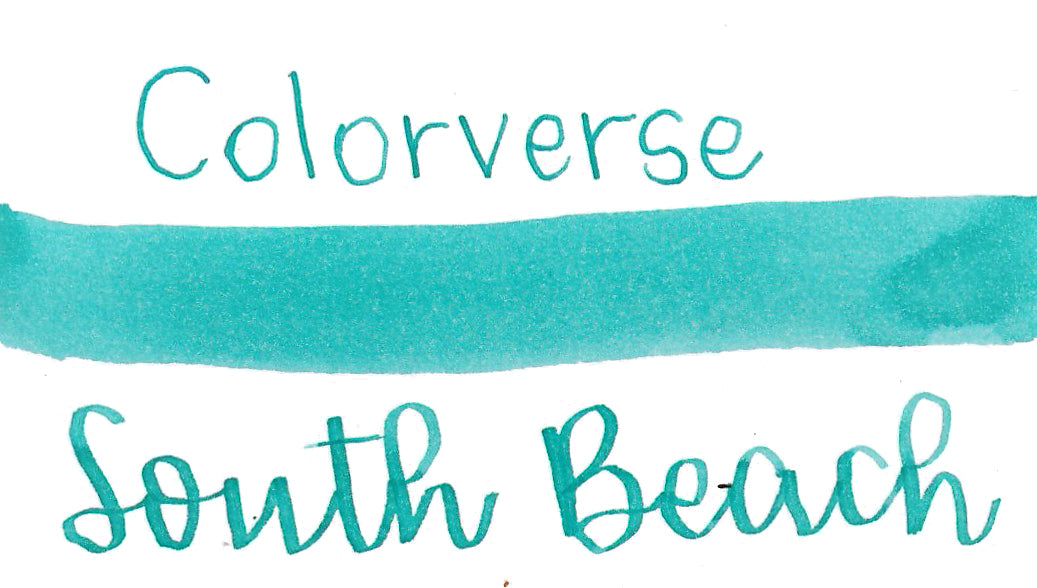 Colorverse
South Beach